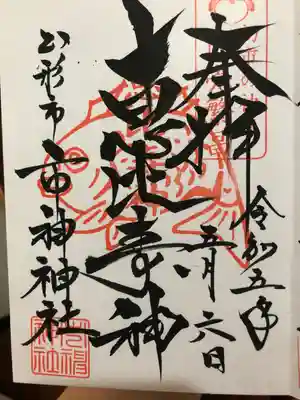 奉拝
令和五年
五月六日
恵比寿神
山形市 市神神社